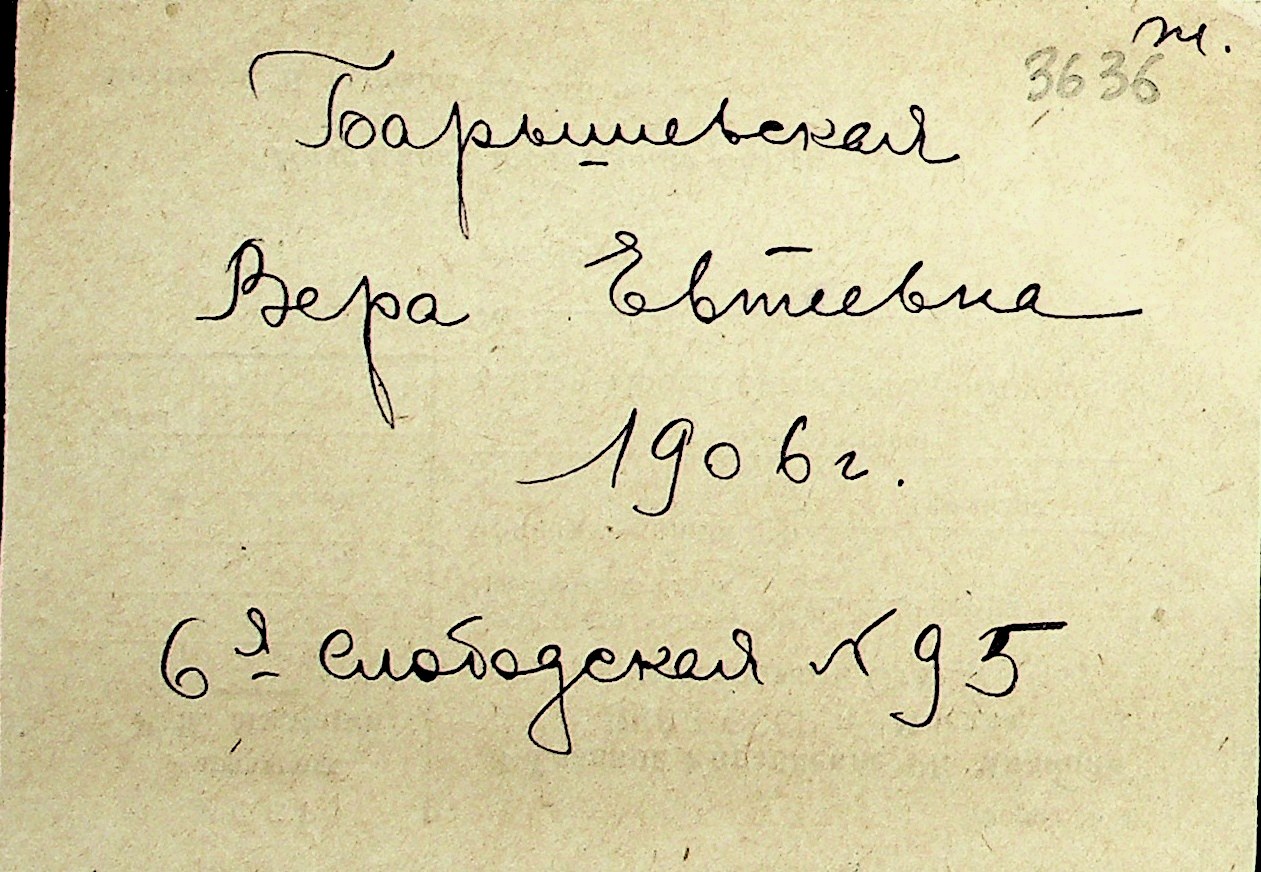 ж.
3636
Барышевская
Вера Евтеевна
1906 г.
6я Слободская № 95